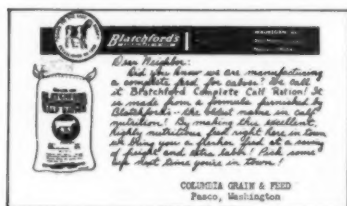 Blatchford's
Dear Neighbor:
Did you know we are manufacturing
a complete feed for calves? We call
it Blatchford Complete Calf Ration! It
is made from a formula furnished by
Blatchfords -- the oldest name in calf
nutrition! By making this excellent,
highly nutritious feed right here in town
we bring you a fresher feed at a saving
of freight and extra labor! Pick some
up next time you're in town!
COLUMBIA GRAIN & FEED
Pasco, Washington